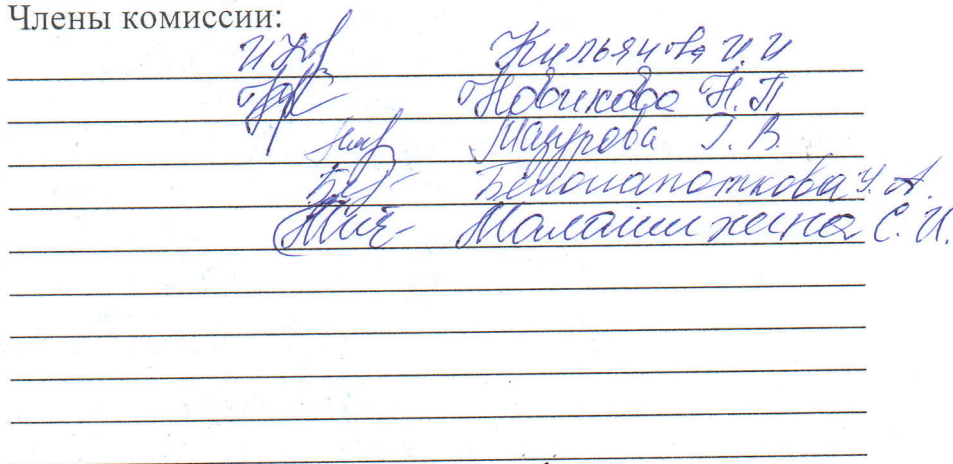 Члены комиссии:
Кильянова И. И
Новикова Н. П
Мазурова Г. В.
Белолапоткова У. А.
Малашихина С. И.